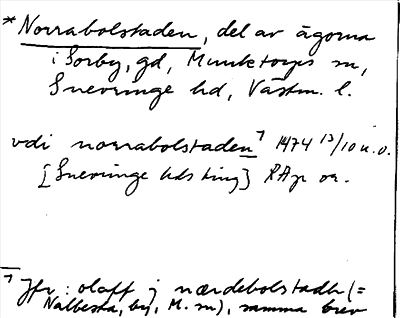 *Norrabolstaden, del av ägorna
i Sorby, gd, Munktorps sn,
Snevringe hd, Västm. l.
vdi norrabolstaden¹ 1474 13/10 u.o.
[Snevringe hds ting] RAp or.
¹ Jfr: olaff j nærdebolstadh (=
Nalbesta, by, M. sn), samma brev